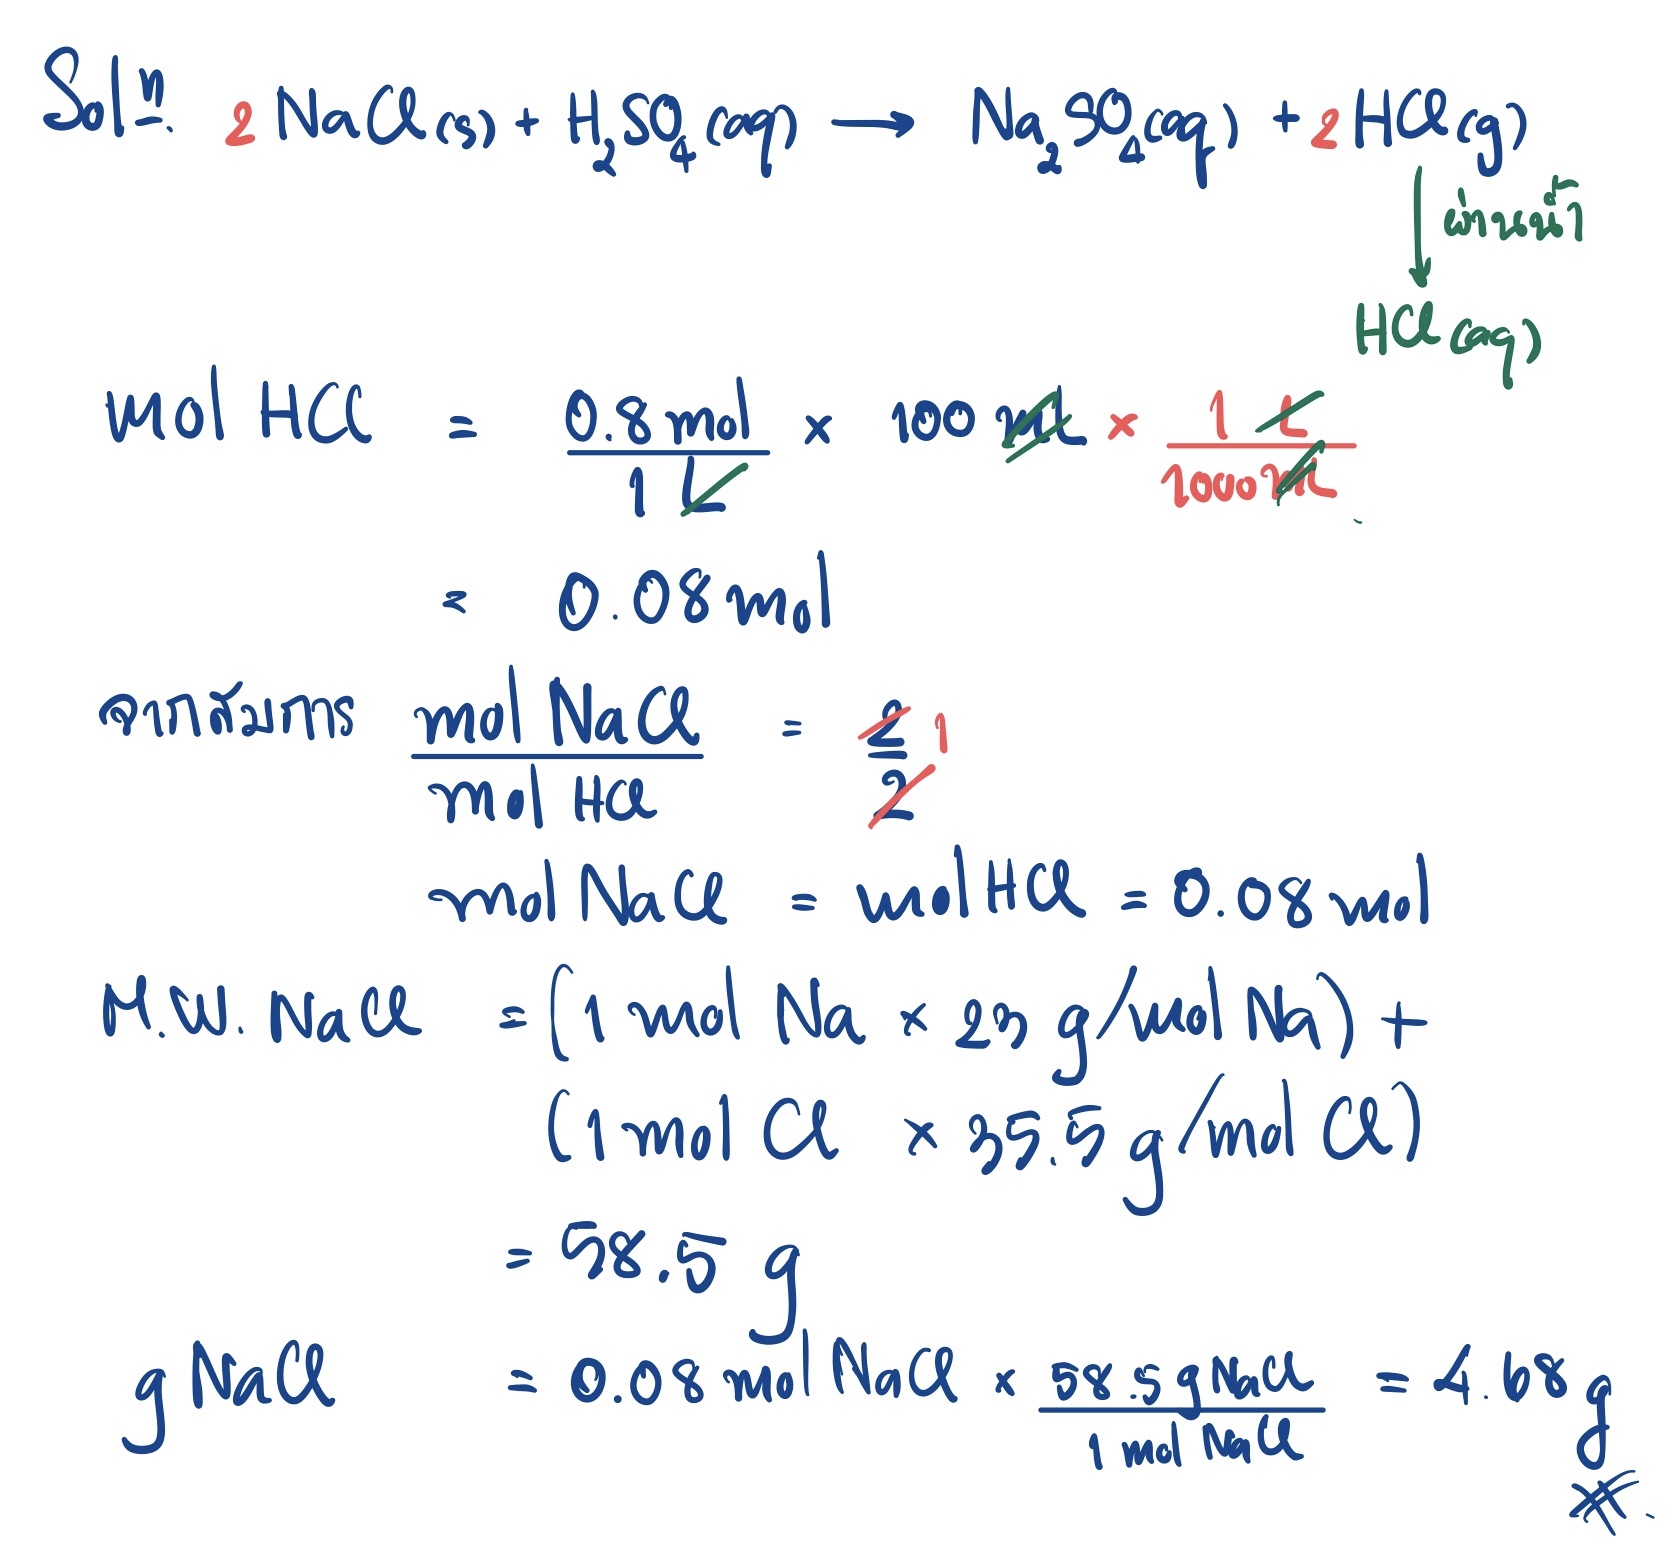 Solⁿ. 2 NaCl(s) + H₂SO₄(aq) → Na₂SO₄(aq) + 2 HCl(g)
ผ่านน้ำ
HCl(aq)
mol HCl = 0.8 mol / 1 L × 100 mL × 1 L / 1000 mL
= 0.08 mol
จากสมการ mol NaCl / mol HCl = 2 / 2 1
mol NaCl = mol HCl = 0.08 mol
M.W. NaCl = (1 mol Na × 23 g/mol Na) +
(1 mol Cl × 35.5 g/mol Cl)
= 58.5 g
g NaCl = 0.08 mol NaCl × 58.5 g NaCl / 1 mol NaCl = 4.68 g
#.